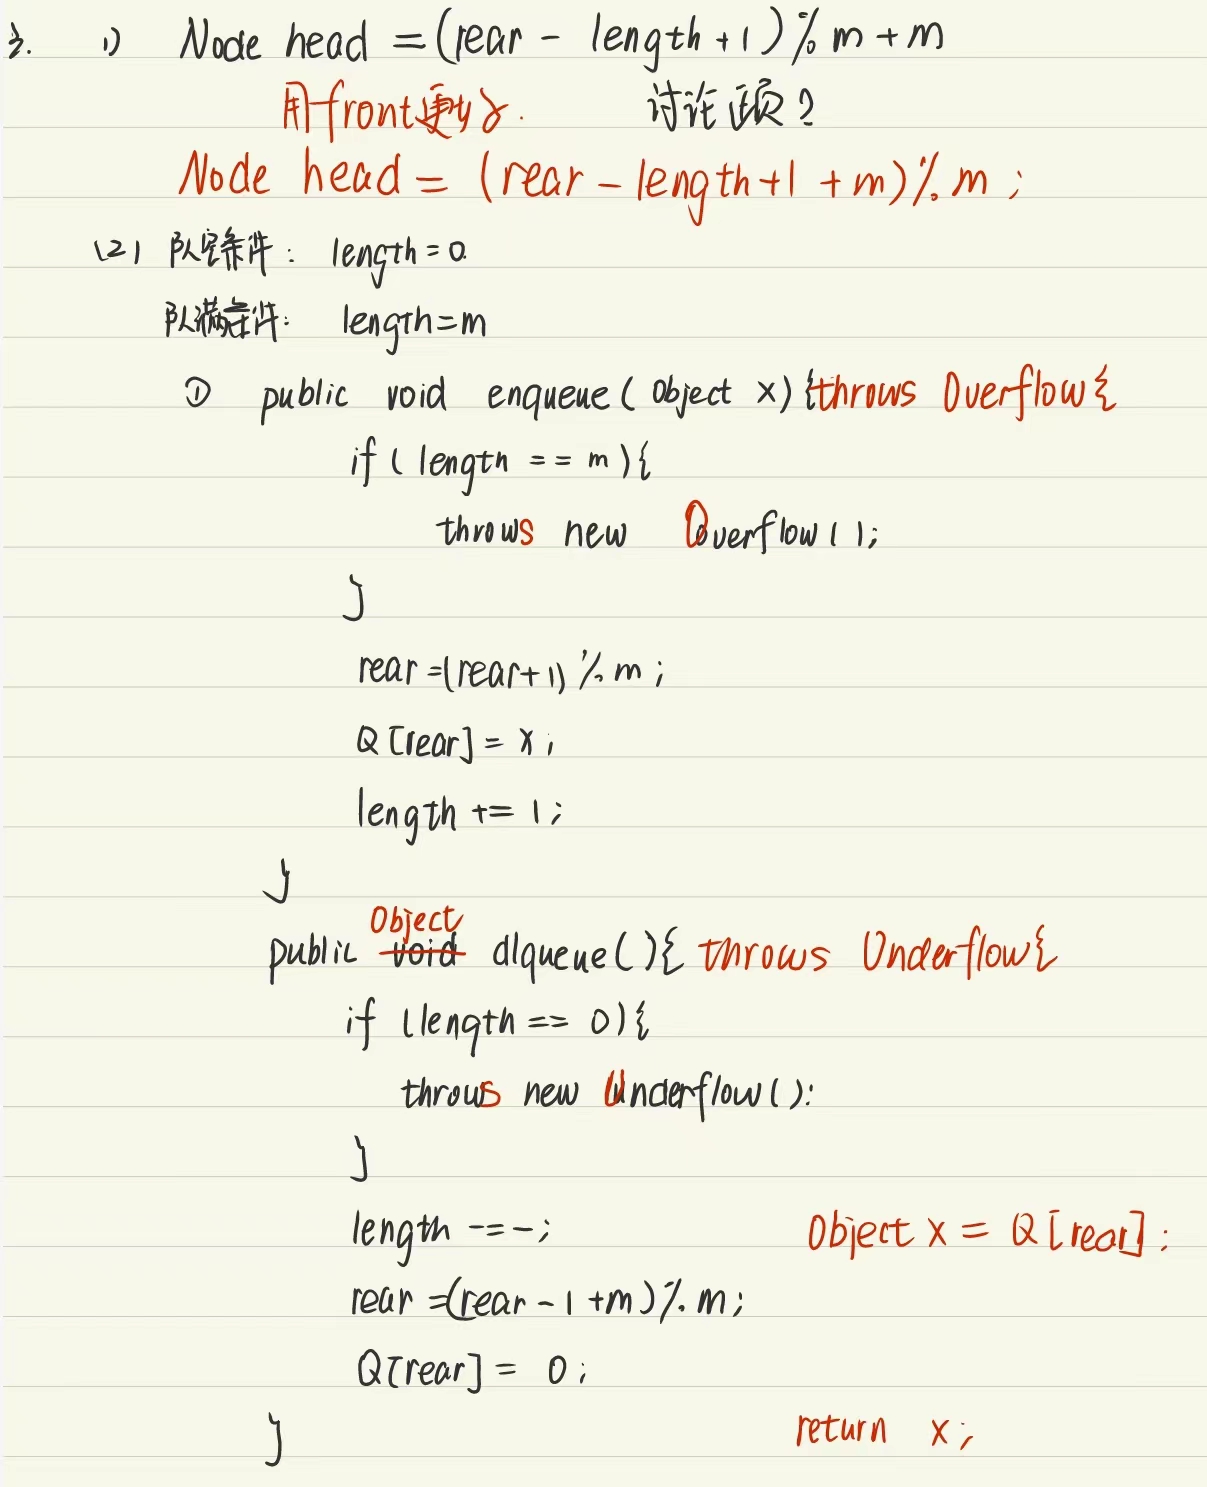 3. 1) Node head = (rear - length + 1) % m + m
用front更好. 讨论正负?
Node head = (rear - length + 1 + m) % m ;
(2) 队空条件: length = 0
队满条件: length = m
① public void enqueue ( Object x ) { throws Overflow {
if ( length == m ) {
throws new Overflow ( );
}
rear = (rear + 1) % m ;
Q [rear] = x ;
length += 1 ;
}
Object
public void dlqueue ( ) { throws Underflow {
if (length == 0) {
throws new Underflow ( ):
}
length -=-; Object x = Q [rear] ;
rear = (rear - 1 + m) % m ;
Q [rear] = 0 ;
} return x ;